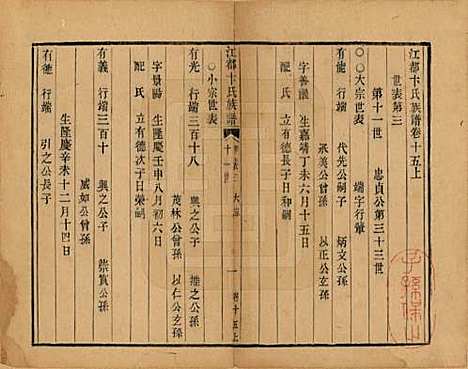 江都卞氏族譜卷十五上
世表第三
第十一世　忠貞公第三十三世
○○大宗世表　端字行輩
代先公嗣子　炳文公曾孫
承美公曾孫　以正公玄孫
字善議　生嘉靖丁未六月十五日
配氏　立有德長子日和嗣
江都卞氏族譜　卷十五上
○小宗世表
有光　行端三百十八　與之公子　維之公孫
茂林公曾孫　以仁公玄孫
字景陽　生隆慶壬申八月初六日
配氏　立有德次子日榮嗣
有義　行端三百十　與之公子　崇質公孫
咸如公曾孫
生隆慶辛未十二月十四日
有德　行端　引之公長子